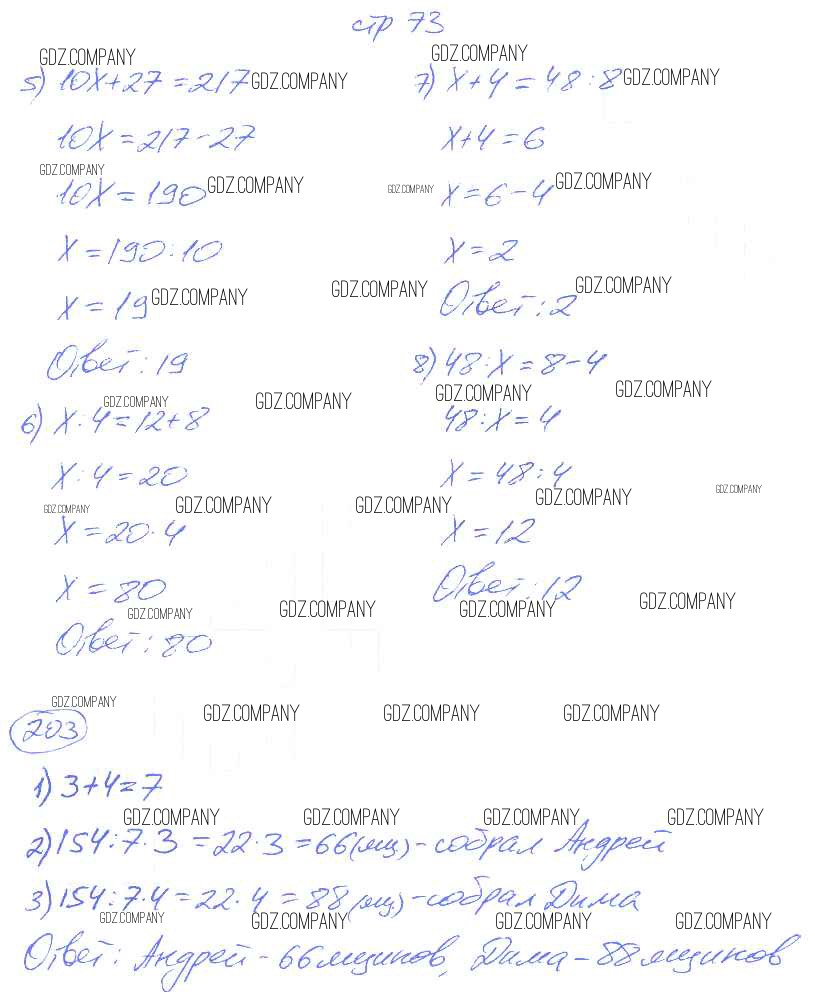 стр 73
GDZ.COMPANY GDZ.COMPANY
5) 10x+27=217 GDZ.COMPANY
10x=217-27
GDZ.COMPANY
10x=190 GDZ.COMPANY
x=190:10
x=19 GDZ.COMPANY GDZ.COMPANY
Ответ: 19
GDZ.COMPANY GDZ.COMPANY
6) x:4=12+8
x:4=20
GDZ.COMPANY GDZ.COMPANY GDZ.COMPANY
x=20·4
x=80
GDZ.COMPANY GDZ.COMPANY
Ответ: 80
7) x+4=48:8 GDZ.COMPANY
x+4=6
GDZ.COMPANY x=6-4 GDZ.COMPANY
x=2
Ответ: 2 GDZ.COMPANY
8) 48:x=8-4
GDZ.COMPANY GDZ.COMPANY
48:x=4
x=48:4
GDZ.COMPANY GDZ.COMPANY
x=12
Ответ: 12
GDZ.COMPANY GDZ.COMPANY
GDZ.COMPANY GDZ.COMPANY GDZ.COMPANY GDZ.COMPANY
203
1) 3+4=7
GDZ.COMPANY GDZ.COMPANY GDZ.COMPANY GDZ.COMPANY
2) 154:7·3=22·3=66(ящ)-собрал Андрей
3) 154:7·4=22·4=88(ящ)-собрал Дима
GDZ.COMPANY GDZ.COMPANY GDZ.COMPANY GDZ.COMPANY
Ответ: Андрей-66 ящиков, Дима-88 ящиков